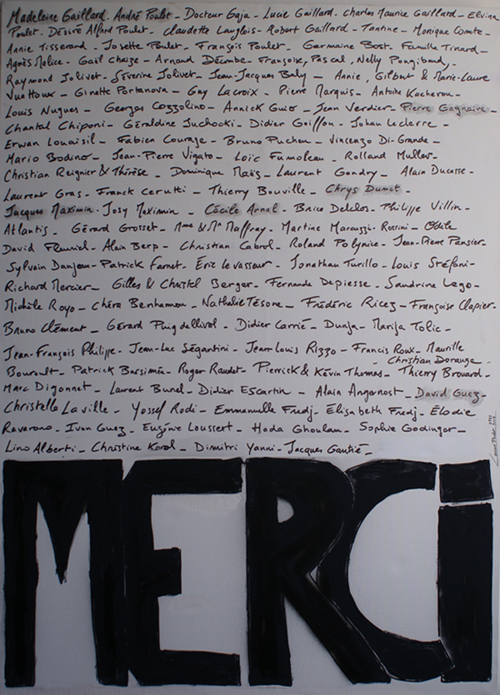 Madeleine Gaillard. André Poulet - Docteur Gaja - Lucie Gaillard. Charles Maurice Gaillard - Elvine
Poulet - Désiré Alfred Poulet - Claudette Langlois - Robert Gaillard - Tantine - Monique Comte -
Annie Tisserand - Josette Poulet - François Poulet - Germaine Bost - Famille Tinard -
Agnès Molice - Gail Chaize - Arnaud Décombe - Françoise, Pascal, Nelly Pongibaud -
Raymond Jolivet - Séverine Jolivet - Jean-Jacques Body - Annie, Gilbert & Marie-Laure
Ginette Portanova - Guy Lacroix - Pierre Marquis - Antoine
Louis Nugues - Georges Cozzolino - Annick - Jean Verdier - Pierre Gagnaire -
Chantal Chiponi - Géraldine Juchocki - Didier Goiffon - Johan Leclarre -
Erwan Louaisil - Fabien Courage - Bruno Puchen - Vincenzo Di-Grande -
Mario Bodinor - Jean-Pierre Vigato - Loïc Fumoleau - Rolland Muller -
Christian Reignier & Thérèse - Dominique - Laurent Gondry - Alain Ducasse -
Laurent Gras - Franck Cerutti - Thierry Bouville - Chrys Dumot -
Jacques Maximin - Josy Maximin - Cécile Arnal - Brice Delclos - Philippe Villin -
Atlantis - Gérard Grosset - Mme & Mr Maffray - Martine Maruzzi - Rossini - Odile
David - Alain Berp - Christian Cabrol - Roland Polynice - Jean-Pierre Pensier -
Sylvain Danjou - Patrick Farnet - Eric Levasseur - Jonathan Turillo - Louis Stéfani -
Richard Mercier - Gilles & Christel Berger - Fernande Depiesse - Sandrine Lego -
Michèle Royo - Chéra Benhamou - Nathalie Tésone - Frédéric Ricez - Françoise Clapier -
Bruno Clément - Gérard Puigdellivol - Didier Carrié - Dunja - Marija Tolic -
Jean-François Philippe - Jean-Luc Ségantini - Jean-Louis Rizzo - Francis Roux - Maurille
Christian Dorange -
Bourrouet - Patrick Barsimés - Roger Raudet - Pierrick & Kévin Thomas - Thierry Brouard -
Marc Digonnet - Laurent Bunel - Didier Escartin - Alain Angenost - David Guez -
Christelle Laville - Yossef Rodi - Emmanuelle Fredj - Elisabeth Fredj - Elodie
Ravarono - Ivan Guez - Eugénie Loussert - Hoda Ghoulam - Sophie Godinger -
Lino Alberti - Christine Korol - Dimitri Yanni - Jacques Gautié -
MERCi